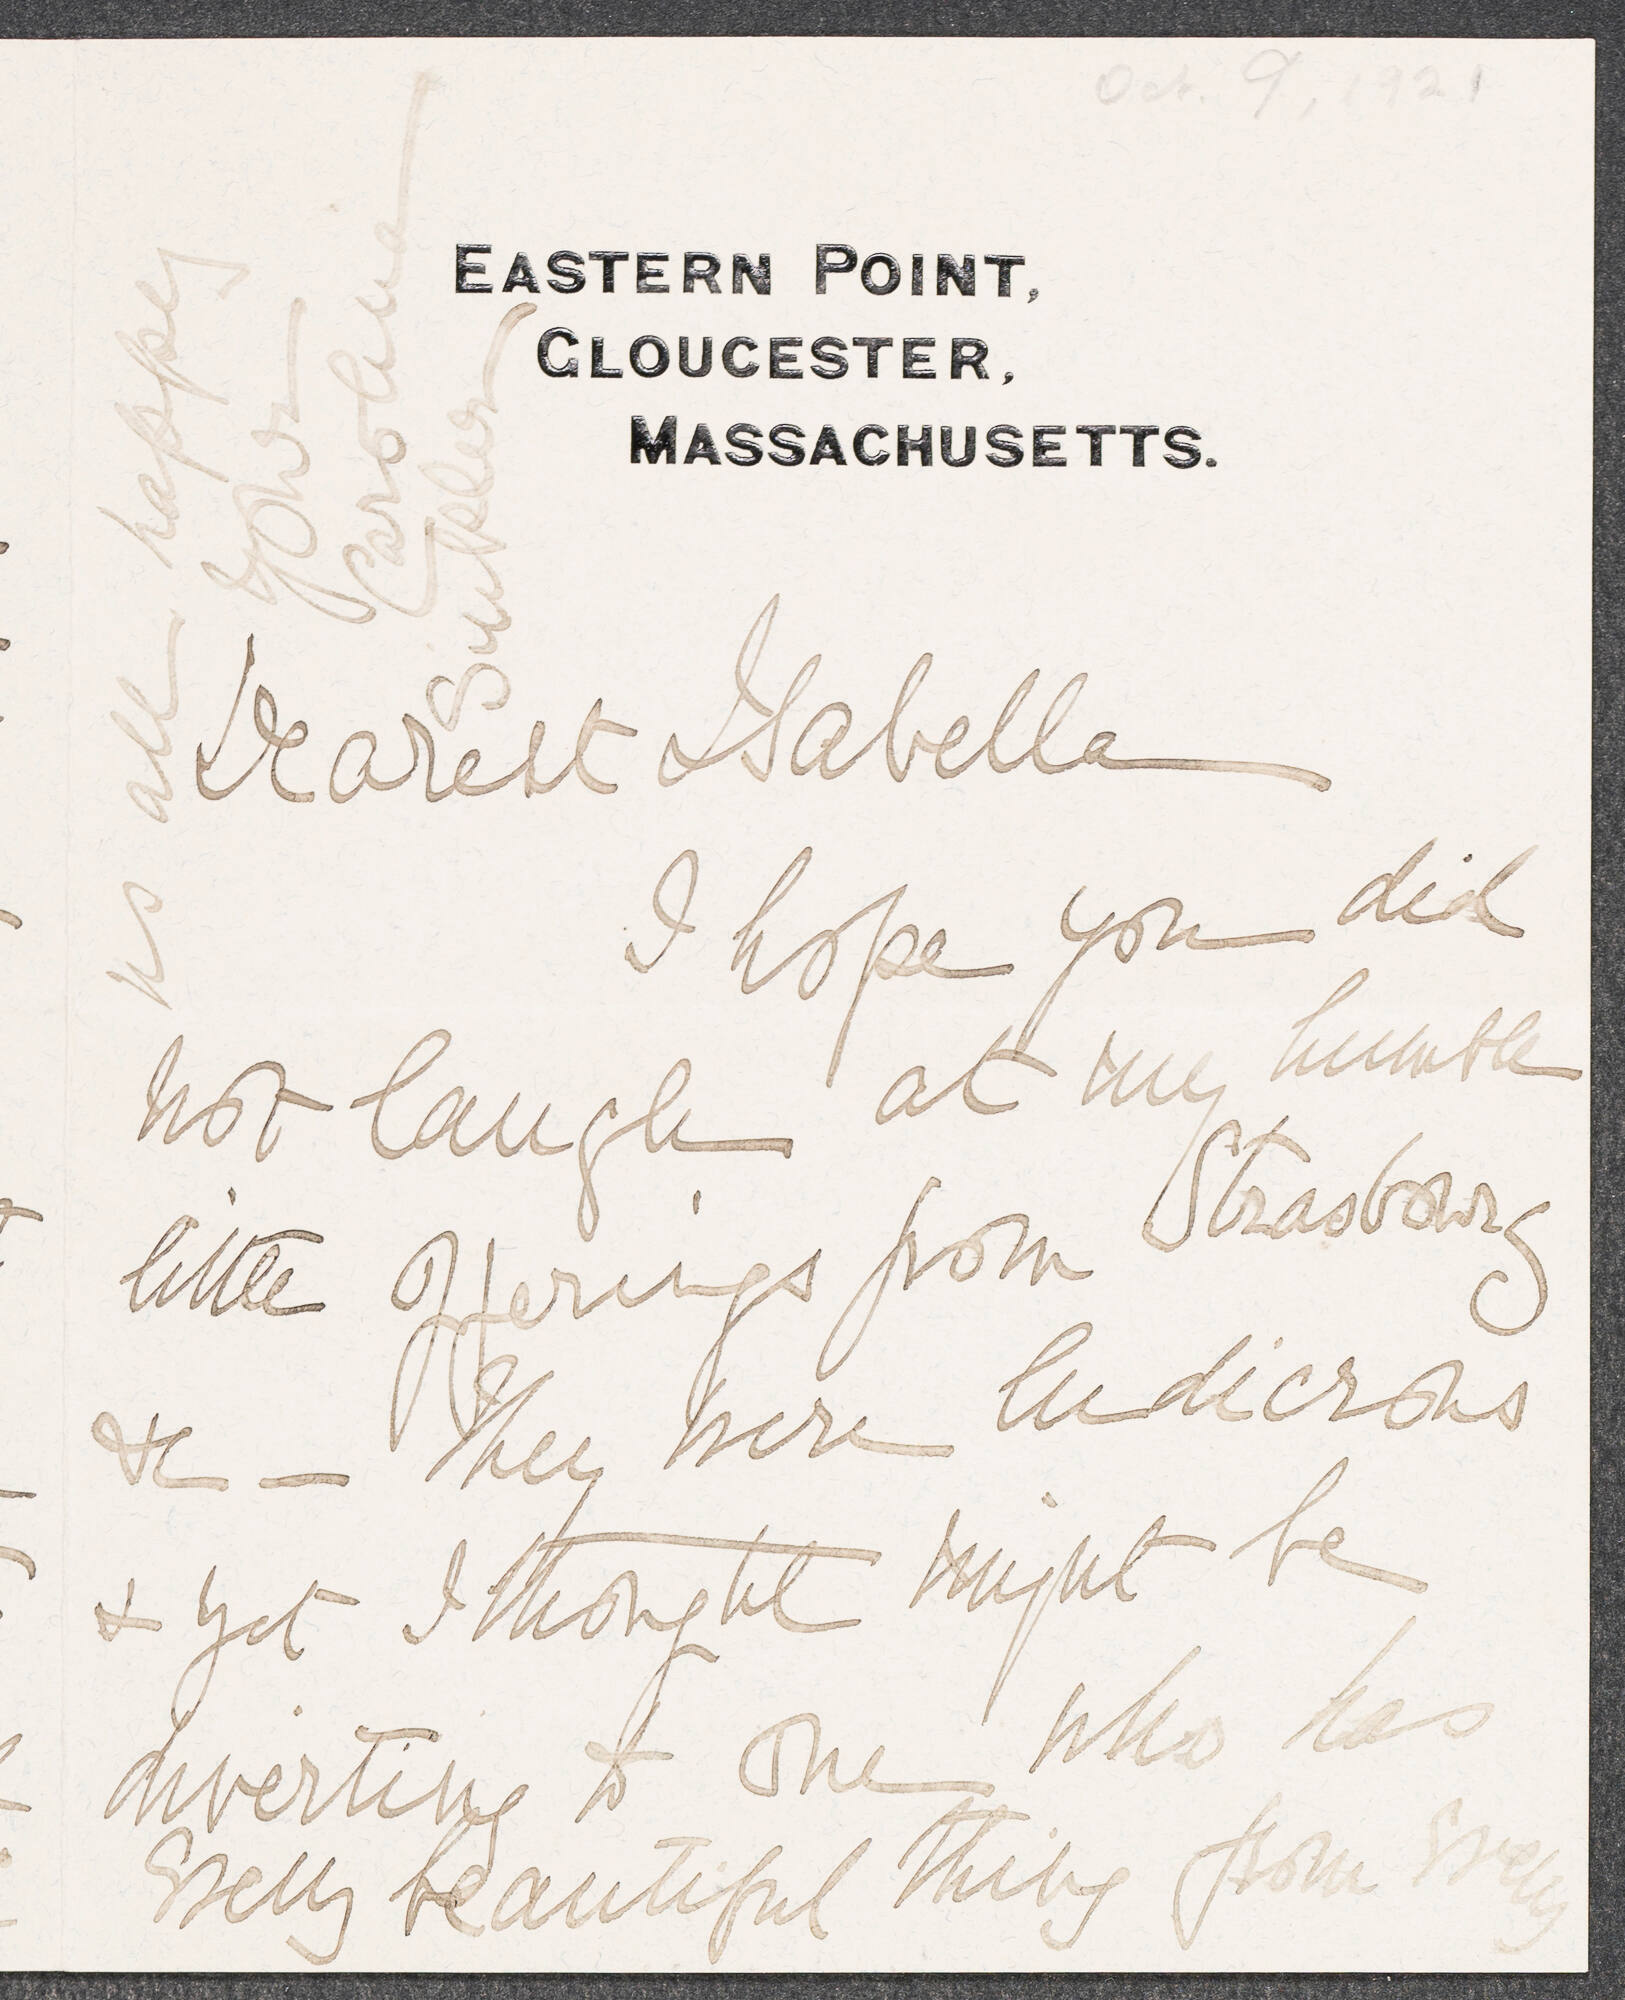 Oct. 9, 1921
EASTERN POINT,
GLOUCESTER,
MASSACHUSETTS.
Dearest Isabella
I hope you did
not laugh at my humble
little offerings from Strasbourg
&c – They were ludicrous
& yet I thought might be
diverting to one who has
every beautiful thing from every
us all happy
Your
Caroline
Sinkler